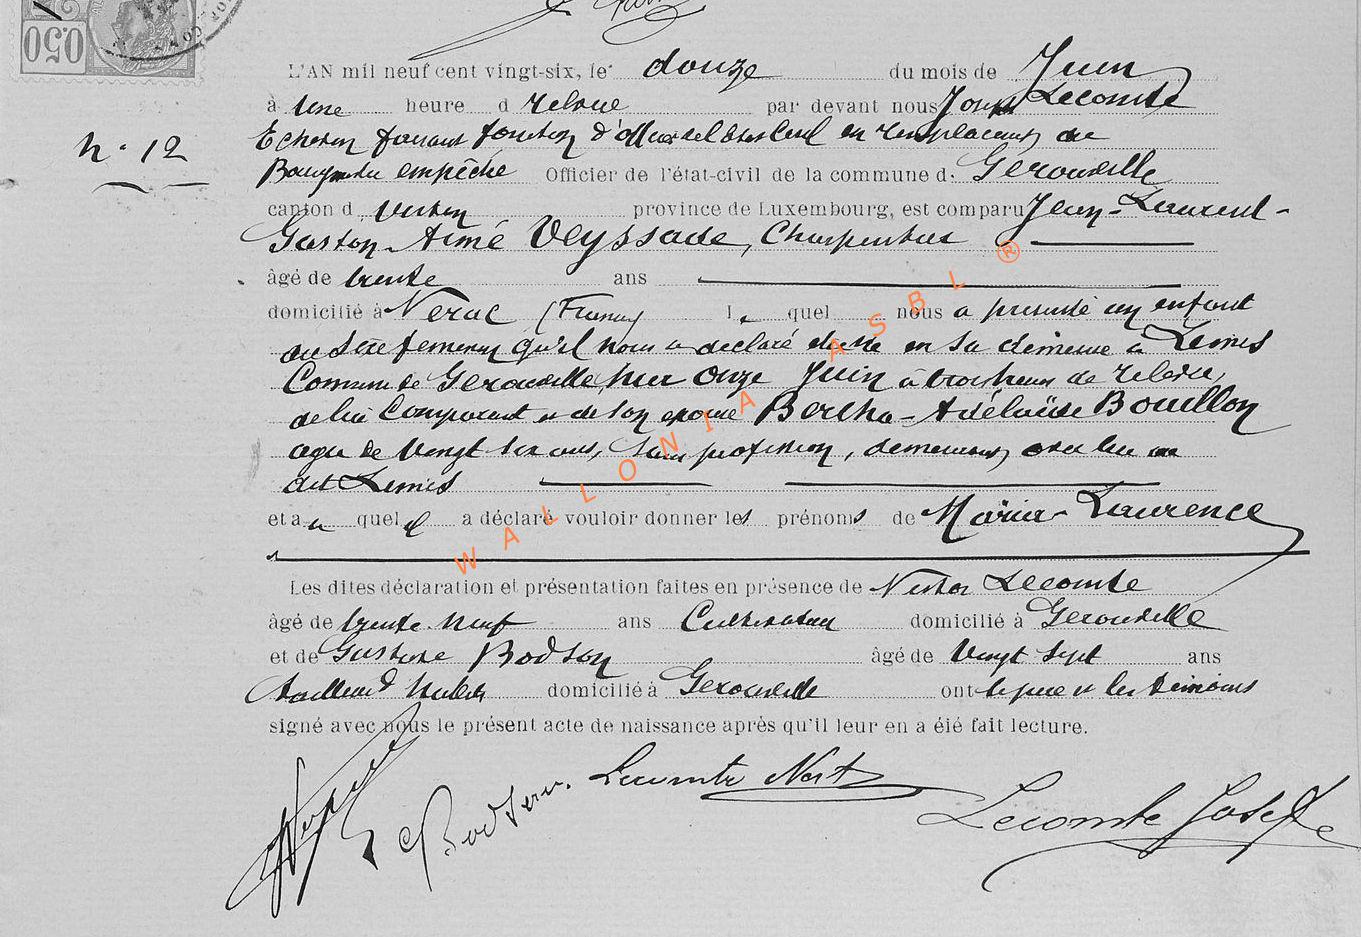 0.50
L'AN mil neuf cent vingt-six, le douze du mois de Juin
à une heure d relevée par devant nous Joseph Lecomte
N° 12
Echevin faisant fonction d'officier de l'état civil en remplacement du
Bourgmestre empêché Officier de l'état-civil de la commune d. Gerouville
canton d Virton province de Luxembourg, est comparu Jean-Laurent-
Gaston-Aimé Veyssade, Charpentier
âgé de trente ans
domicilié à Nérac (France) lequel nous a présenté un enfant
du sexe féminin qu'il nous a déclaré être né en sa demeure à Limes
Commune de Gerouville, hier onze Juin à trois heures de relevée,
de lui comparant et de son épouse Bertha-Adélaïde Bouillon
agée de vingt six ans, sans profession, demeurant avec lui au
dit Limes
et a u quel il a déclaré vouloir donner les prénoms de Maria-Laurence
Les dites déclaration et présentation faites en présence de Nestor Lecomte
âgé de trente-neuf ans Cultivateur domicilié à Gerouville
et de Gustave Bodson âgé de vingt sept ans
domicilié à Gerouville ont le père et les témoins
signé avec nous le présent acte de naissance après qu'il leur en a été fait lecture.
Bodson. Lecomte Nest Lecomte Joseph
WALLONIA ASBL ®